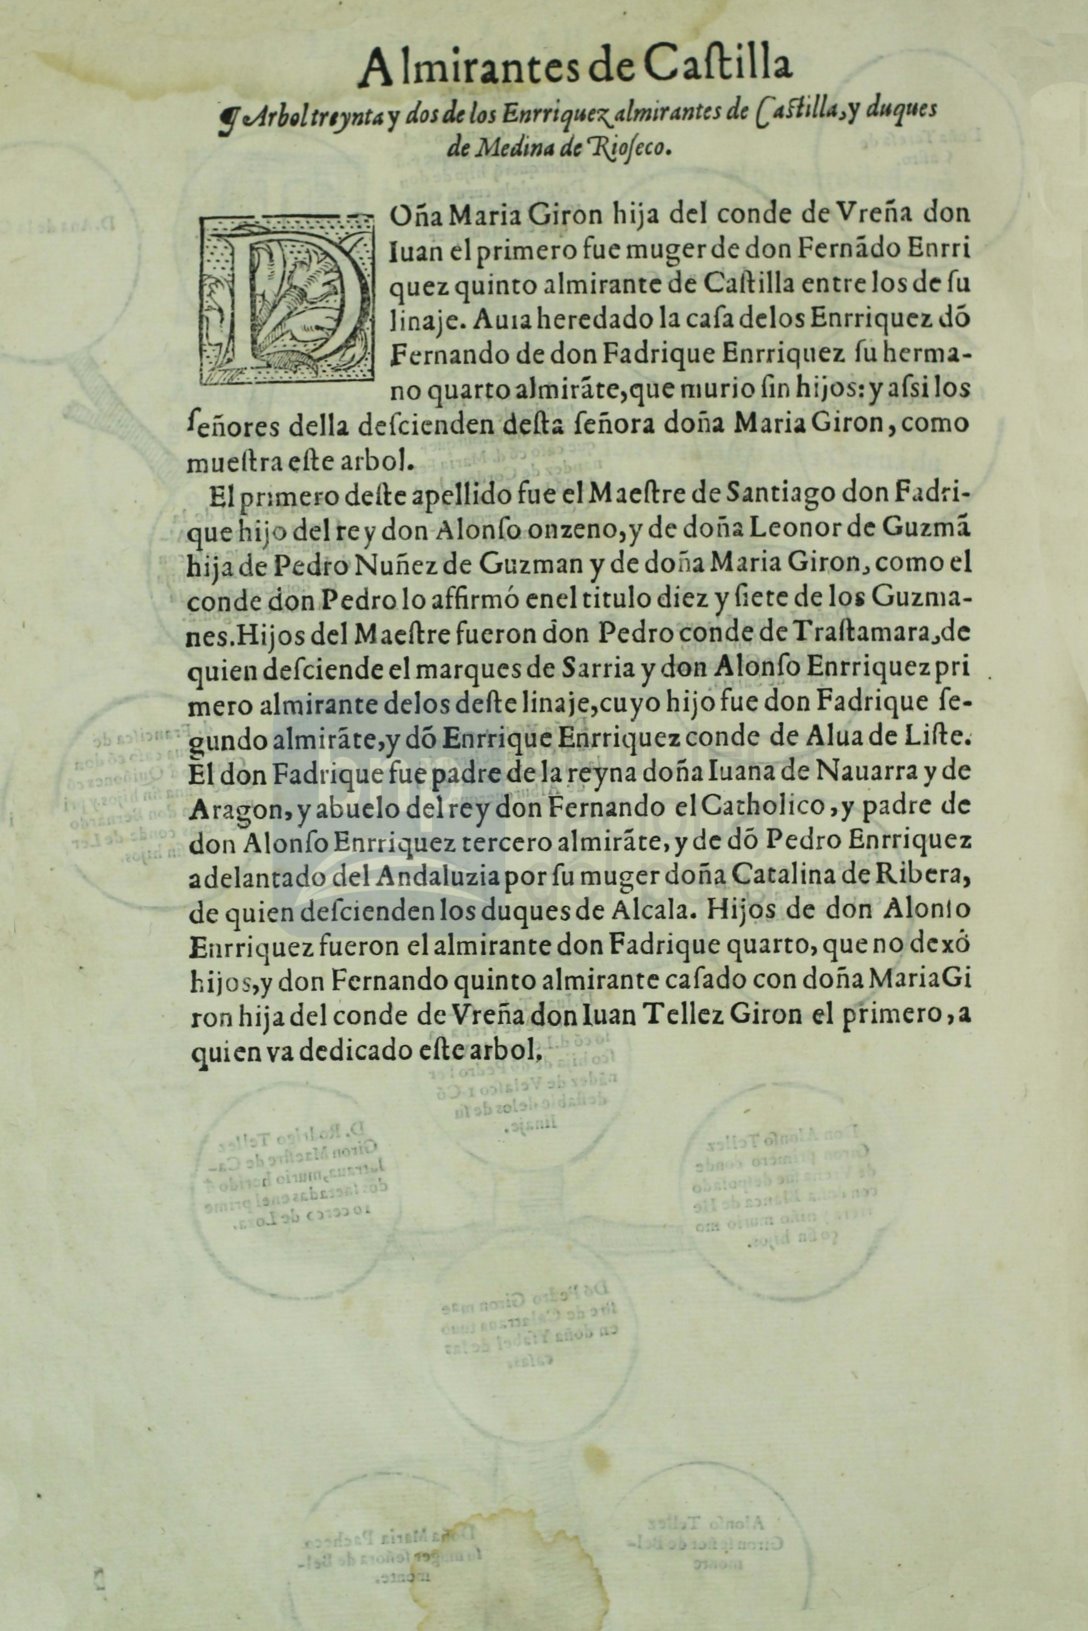 Almirantes de Caſtilla
¶ Arbol treynta y dos de los Enrriquez almirantes de Caſtilla, y duques
de Medina de Rioſeco.
DOña Maria Giron hija del conde de Vreña don
Iuan el primero fue muger de don Fernãdo Enrri
quez quinto almirante de Caſtilla entre los de ſu
linaje. Auia heredado la caſa delos Enrriquez dõ
Fernando de don Fadrique Enrriquez ſu herma-
no quarto almirãte, que murio ſin hijos: y aſsi los
ſeñores della deſcienden deſta ſeñora doña Maria Giron, como
mueſtra eſte arbol.
El primero deſte apellido fue el Maeſtre de Santiago don Fadri-
que hijo del rey don Alonſo onzeno, y de doña Leonor de Guzmã
hija de Pedro Nuñez de Guzman y de doña Maria Giron, como el
conde don Pedro lo affirmó enel titulo diez y ſiete de los Guzma-
nes. Hijos del Maeſtre fueron don Pedro conde de Traſtamara, de
quien deſciende el marques de Sarria y don Alonſo Enrriquez pri
mero almirante delos deſte linaje, cuyo hijo fue don Fadrique ſe-
gundo almirãte, y dõ Enrrique Enrriquez conde de Alua de Liſte.
El don Fadrique fue padre de la reyna doña Iuana de Nauarra y de
Aragon, y abuelo del rey don Fernando el Catholico, y padre de
don Alonſo Enrriquez tercero almirãte, y de dõ Pedro Enrriquez
adelantado del Andaluzia por ſu muger doña Catalina de Ribera,
de quien deſcienden los duques de Alcala. Hijos de don Alonſo
Enrriquez fueron el almirante don Fadrique quarto, que no dexó
hijos, y don Fernando quinto almirante caſado con doña Maria Gi
ron hija del conde de Vreña don Iuan Tellez Giron el primero, a
quien va dedicado eſte arbol.